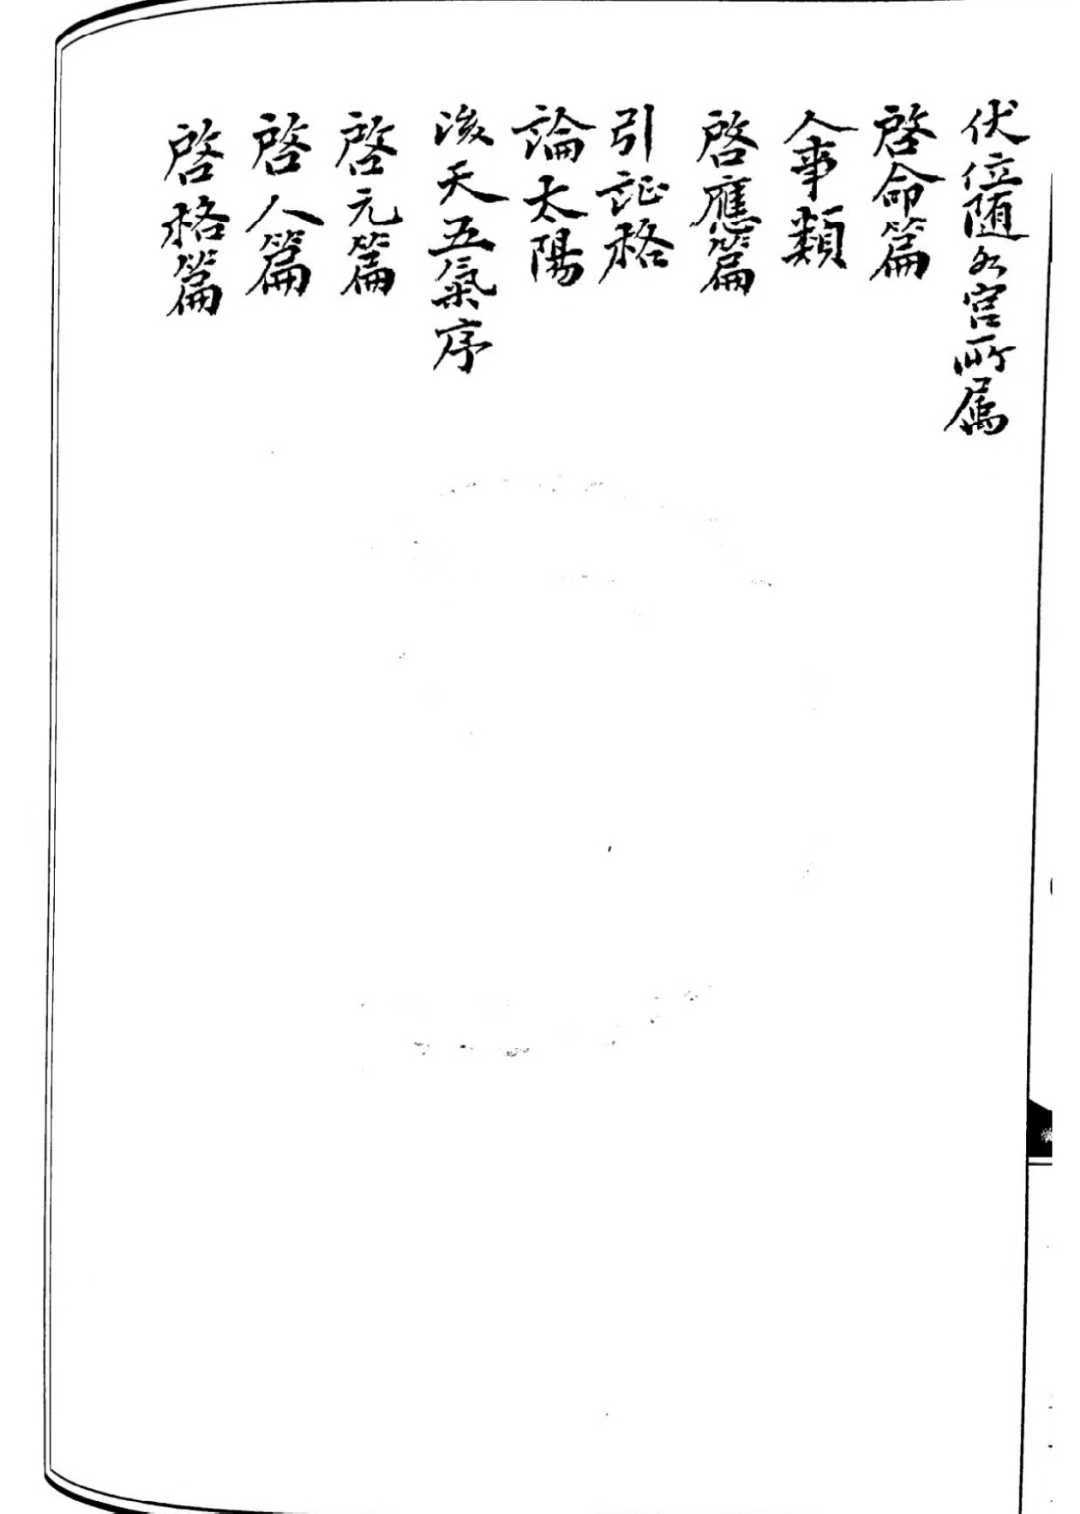 伏位随各宫所属
啓命篇
人事類
啓應篇
引証格
論太陽
後天五氣序
啓元篇
啓人篇
啓格篇